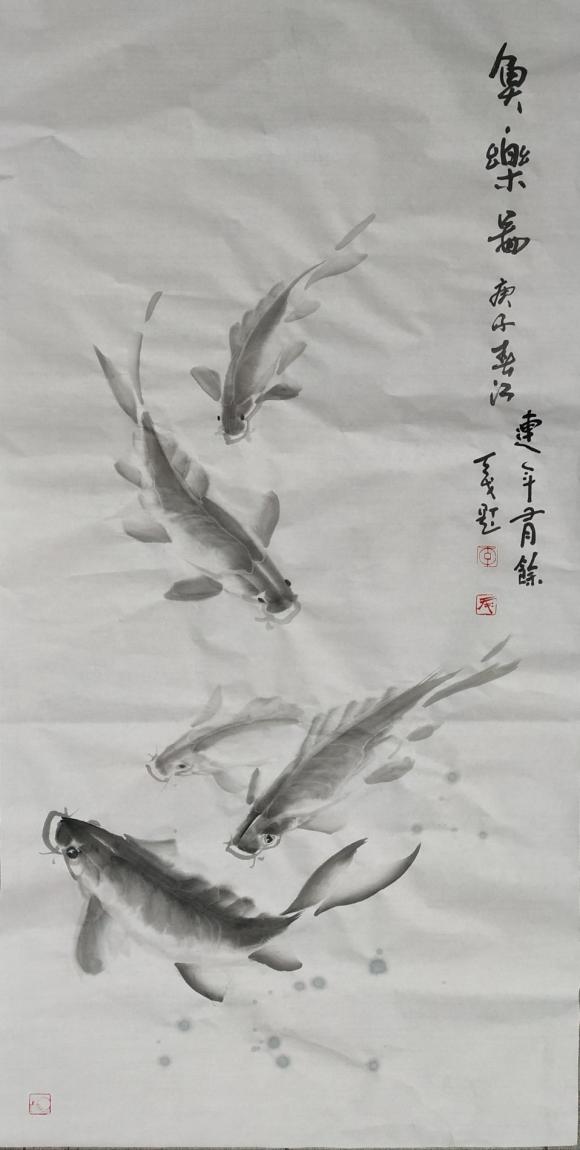 魚樂圖庚子春江
連年有餘
茂題